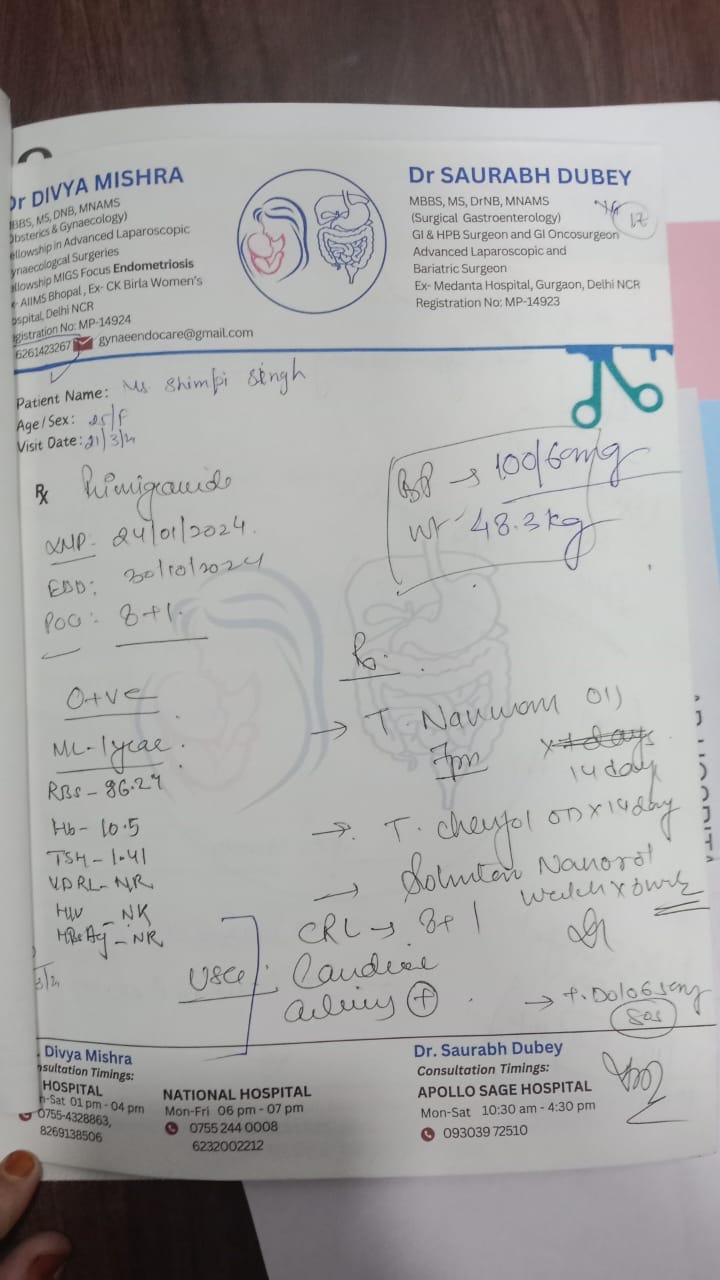 Dr DIVYA MISHRA
MBBS, MS, DNB, MNAMS
(Obsterics & Gynaecology)
Fellowship in Advanced Laparoscopic
Gynaecologcal Surgeries
Fellowship MIGS Focus Endometriosis
AIIMS Bhopal, Ex- CK Birla Women's
Hospital, Delhi NCR
Registration No: MP-14924
6261423267 gynaeendocare@gmail.com
Dr SAURABH DUBEY
MBBS, MS, DrNB, MNAMS
(Surgical Gastroenterology)
GI & HPB Surgeon and GI Oncosurgeon
Advanced Laparoscopic and
Bariatric Surgeon
Ex- Medanta Hospital, Gurgaon, Delhi NCR
Registration No: MP-14923
17
Patient Name: Ms Shimpi Singh
Age/Sex: 25/F
Visit Date: 21/3/24
Rx Primigravida
LMP: 24/01/2024.
EDD: 30/10/2024
POG: 8+1.
BP → 100/60mg
wt 48.3kg
O+ve
ML-1year.
RBS - 86.27
Hb- 10.5
TSH - 1.41
VDRL- NR
HIV - NR
HBsAg - NR
Rx.
→ T. 011
7pm x 7 days
14 day
→ T. OD x 14 day
→ 
USG: CRL → 8+1
Cardiac
activity +
→ T. Dolo 650mg
SOS
Divya Mishra
Consultation Timings:
HOSPITAL
Mon-Sat 01 pm - 04 pm
0755-4328863,
8269138506
NATIONAL HOSPITAL
Mon-Fri 06 pm - 07 pm
0755 244 0008
6232002212
Dr. Saurabh Dubey
Consultation Timings:
APOLLO SAGE HOSPITAL
Mon-Sat 10:30 am - 4:30 pm
093039 72510